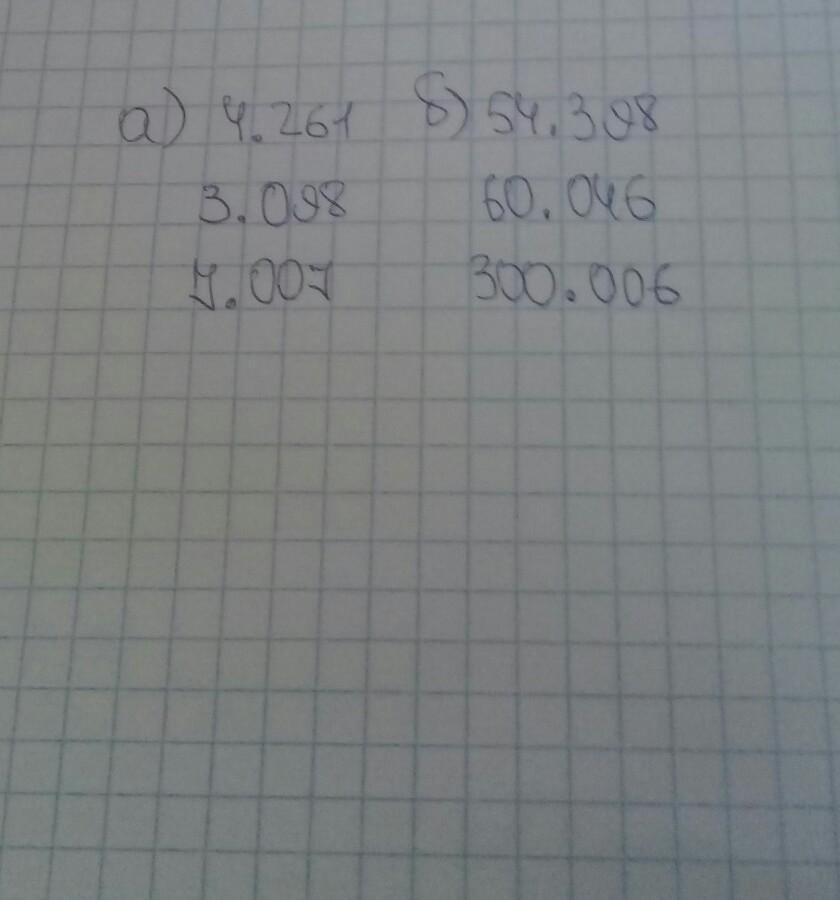 а) 4.261 б) 54.398
3.098 60.046
7.007 300.006